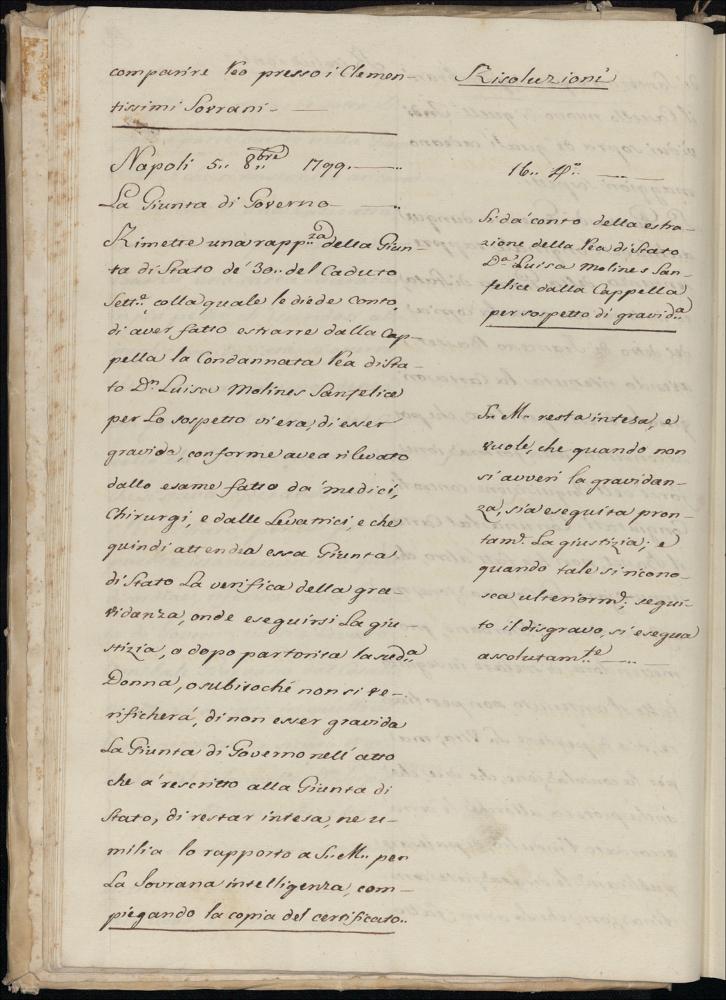 comparire Reo presso i Clemen-
tissimi Sovrani-
Napoli 5.. 8bre 1799.
La Giunta di Governo
Rimette una rapp.za della Giun
ta di Stato de' 30.. del Caduto
Sett.e, colla quale le diede conto,
di aver fatto estrarre dalla Cap-
pella la Condannata Rea di Sta-
to D.n Luisa Molines Sanfelice
per lo sospetto vi era, di esser
gravida, conforme avea rilevato
dallo esame fatto da' medici,
Chirurgi, e dalle Levatrici, e che
quindi attendea essa Giunta
di Stato la verifica della gra-
vidanza, onde eseguirsi la giu-
stizia, o dopo partorita la sud.a
Donna, o subitoché non si ve-
rificherà, di non esser gravida
La Giunta di Governo nell' atto
che à rescritto alla Giunta di
Stato, di restar intesa, ne u-
milia lo rapporto a S. M.. per
la Sovrana intelligenza, com-
piegando la copia del certificato..
Risoluzioni
16.. d.o
Si dà conto della estra-
zione della Rea di Stato
D.a Luisa Molines San-
felice dalla Cappella
per sospetto di gravid.a
S. M. resta intesa, e
vuole, che quando non
si avveri la gravidan-
za, sia eseguita pron-
tam.e la giustizia; e
quando tale si ricono-
sca ulteriorm.e; segui-
to il disgravo, si esegua
assolutam.te